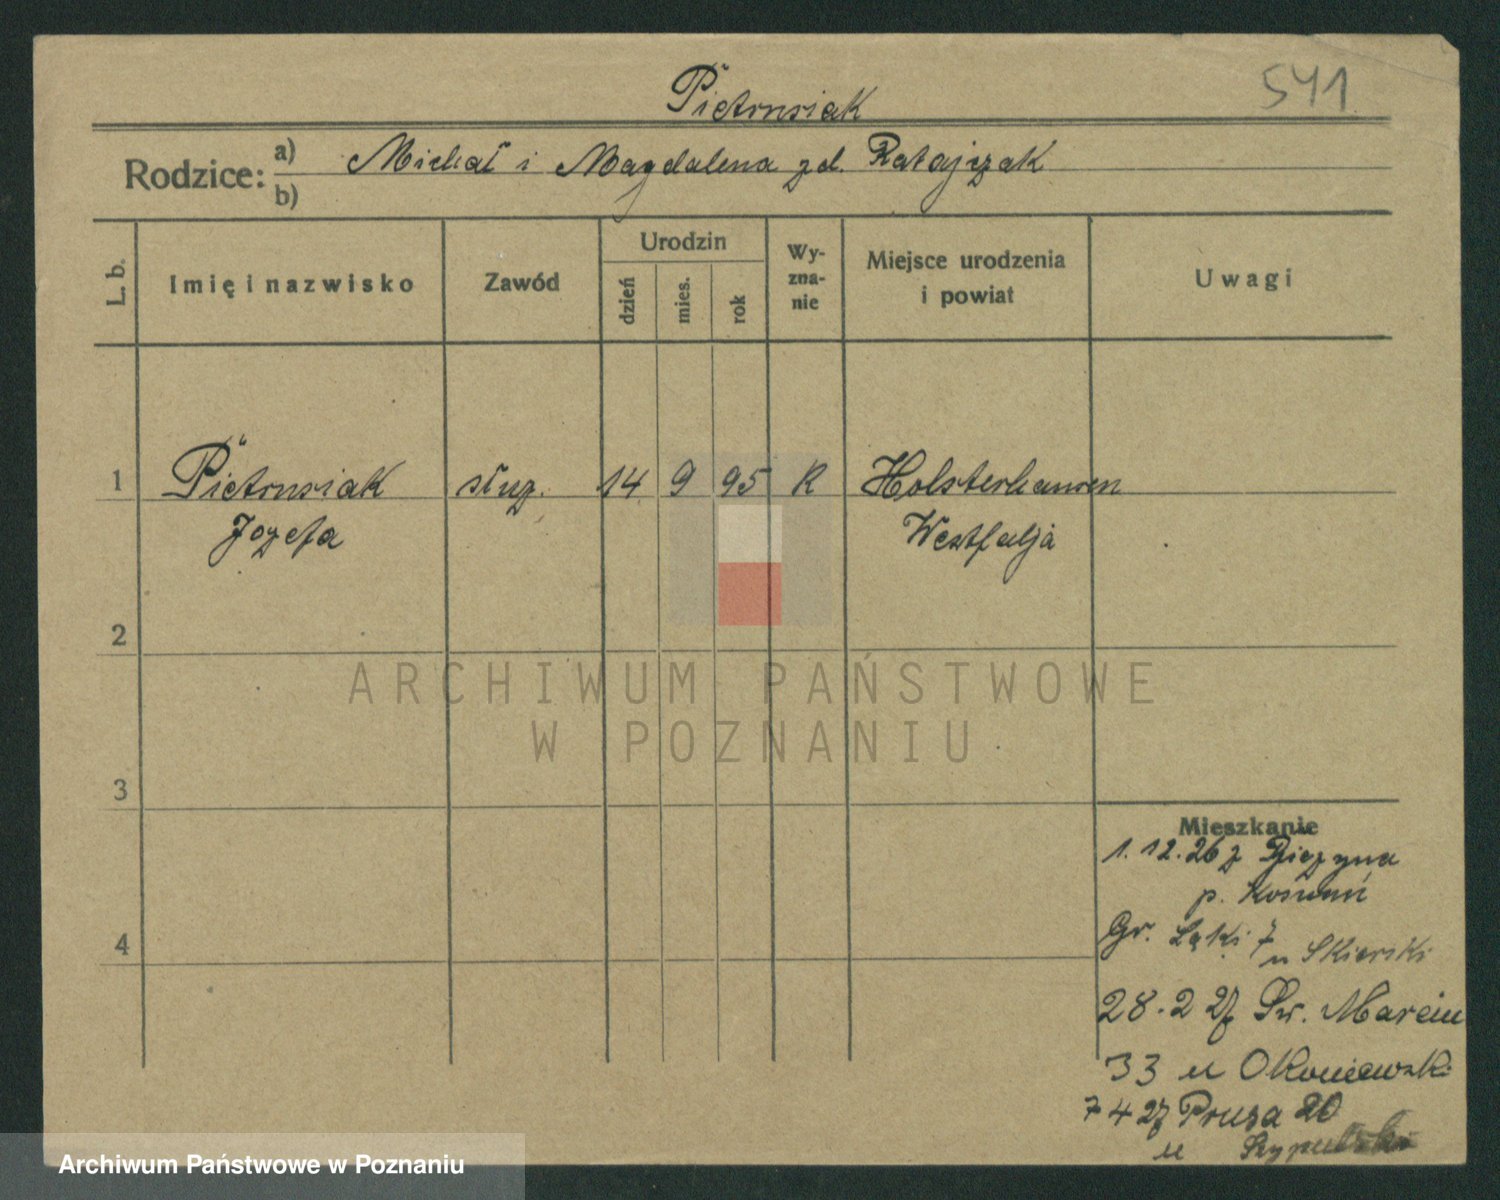 Pietrusiak
541
Rodzice: a) Michał i Magdalena zd. Ratajczak
b)
L. b.
Imię i nazwisko
Zawód
Urodzin
dzień
mies.
rok
Wy-
zna-
nie
Miejsce urodzenia
i powiat
Uwagi
1 Pietrusiak służ. 14 9 95 R Holsterhausen
Józefa Westfalja
2
ARCHIWUM PAŃSTWOWE
W POZNANIU
3
Mieszkanie
1. 12. 26 z
p.
4
Gr. Łąki 7
u Skierski
28. 2 27 Św. Marcin
33 u Okoniewski
7 4 27 Prusa 20
u
Archiwum Państwowe w Poznaniu